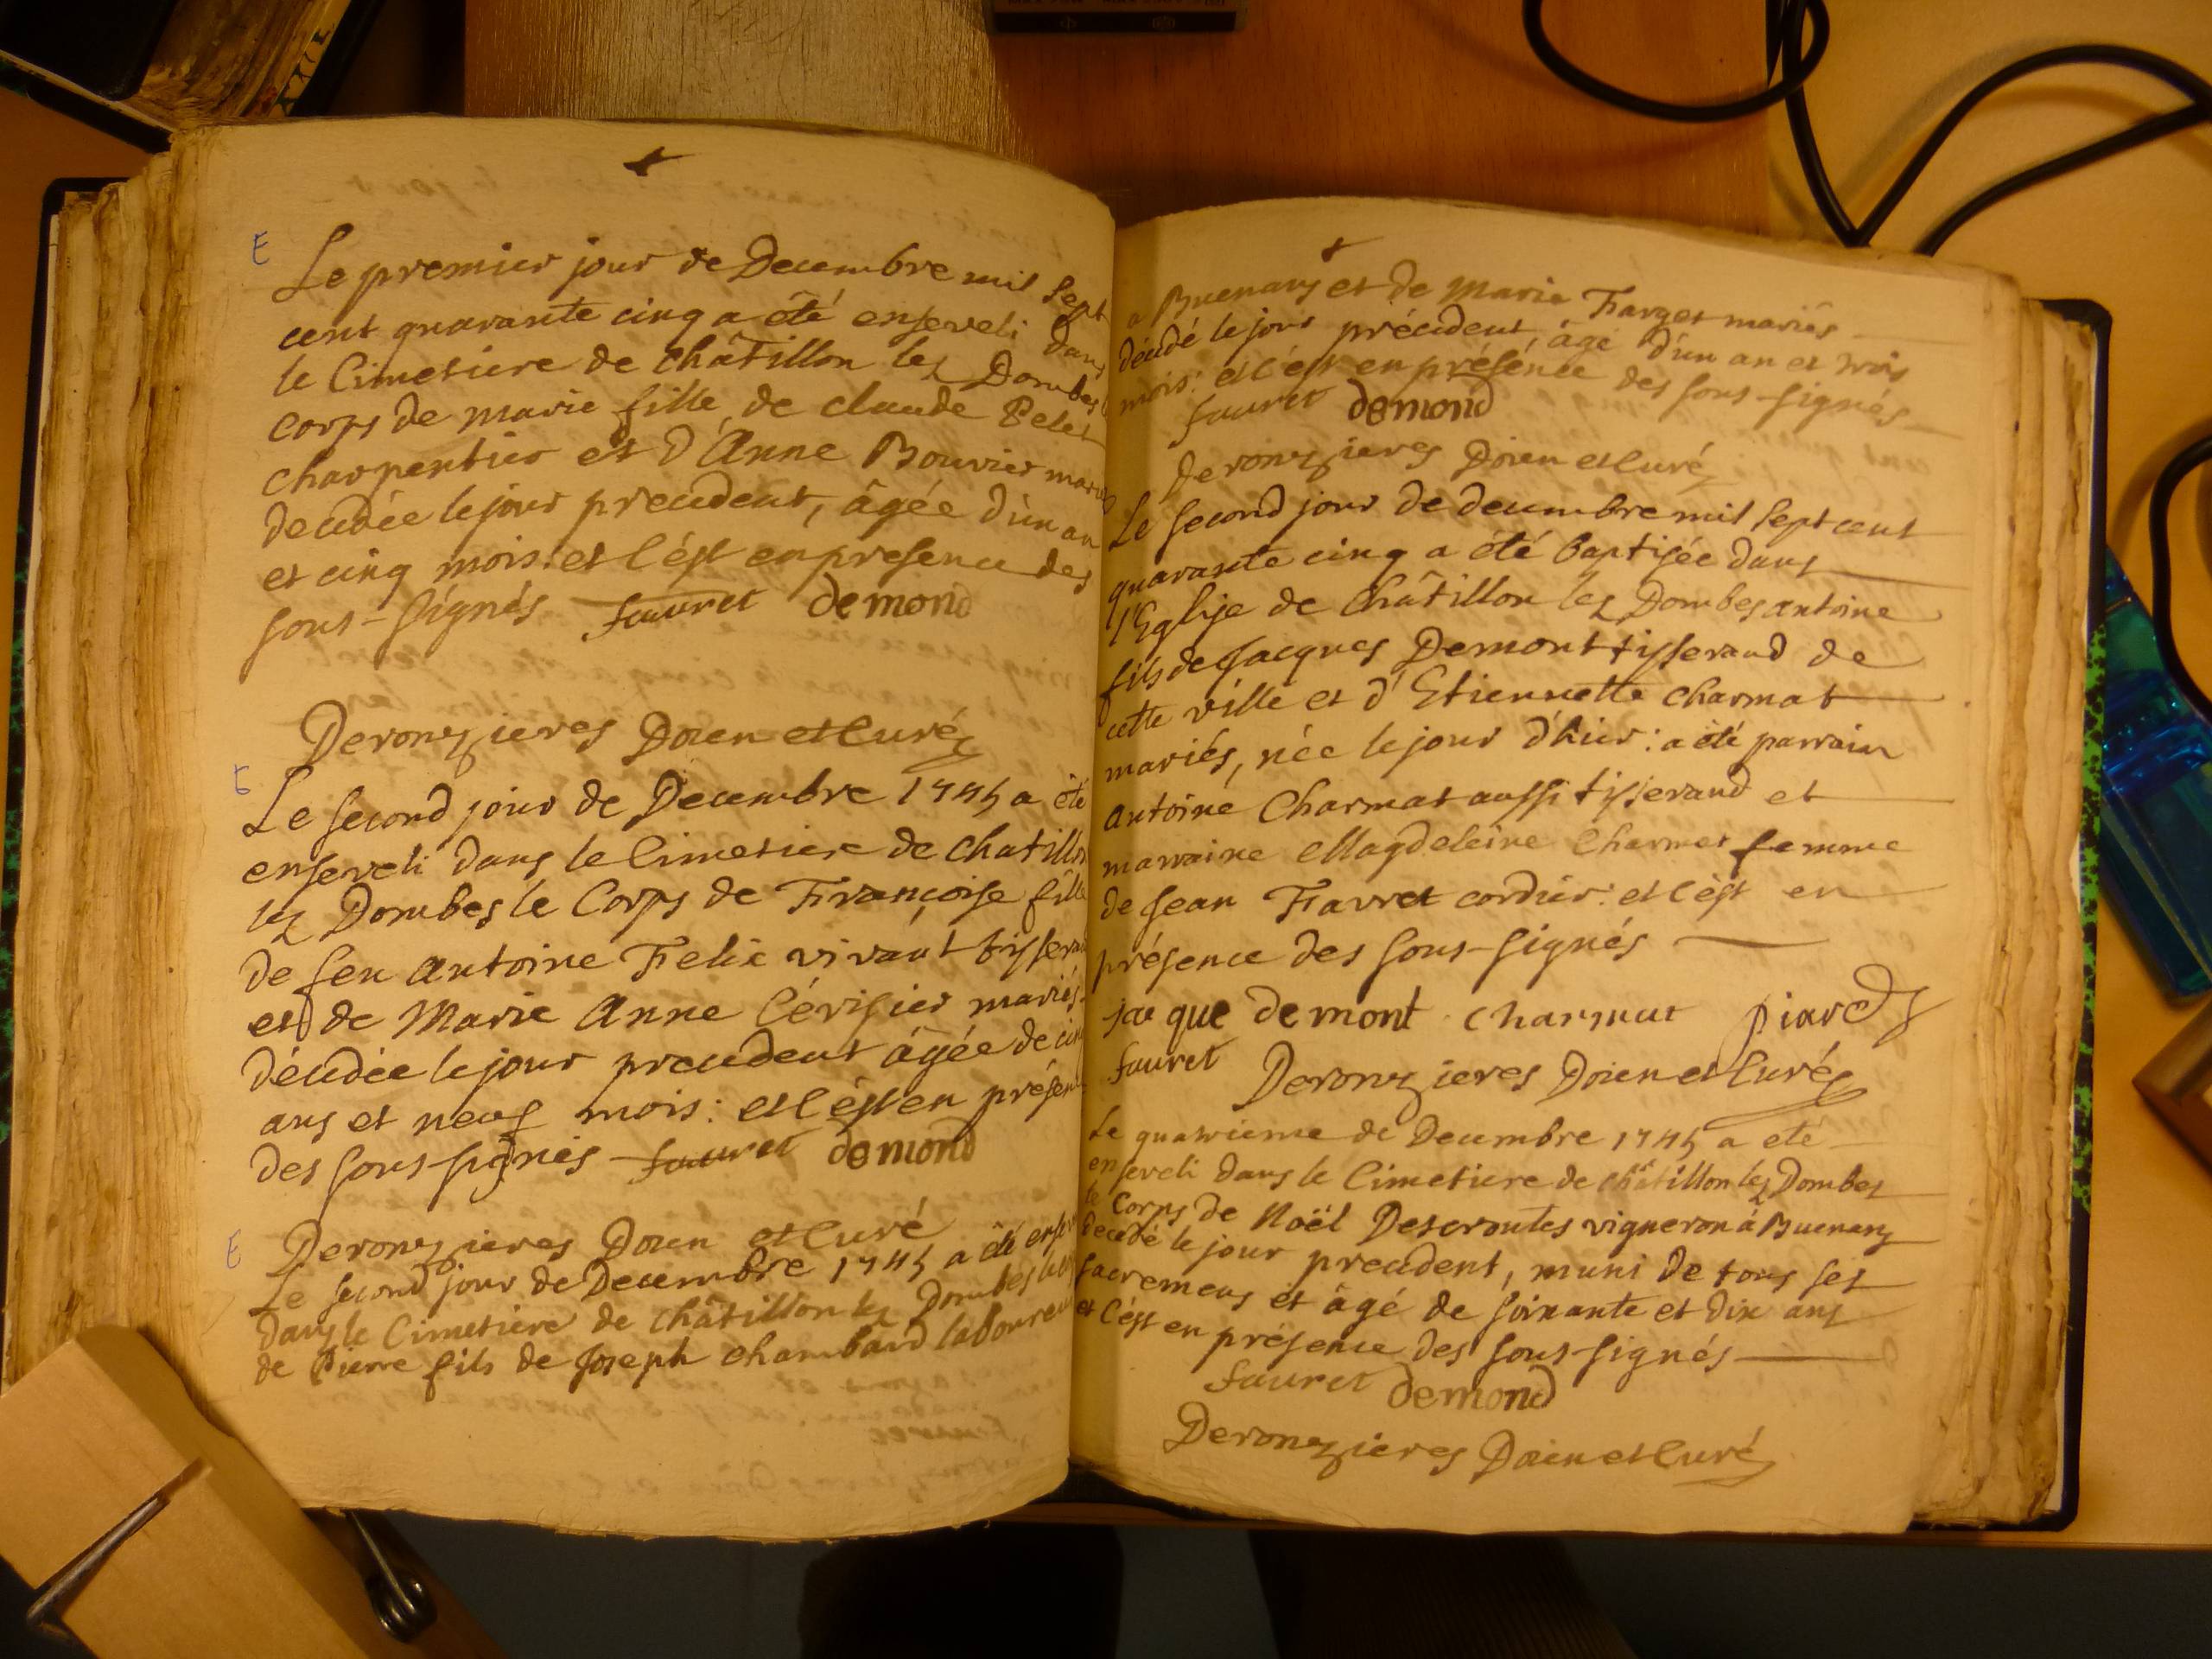 E
Le premier jour de Decembre mil sept
cent quarante cinq a été enseveli dans
le Cimetiere de châtillon lez Dombes
corps de marie fille de claude Pelet
charpentier et d'Anne Bouvier
decedée le jour precedent, âgée d'un an
et cinq mois: et c'ést en presence des
sous-signés fauret demond
Deronzieres Doien et Curé
E
Le second jour de Decembre 1745 a été
enseveli dans le Cimetiere de chatillon
lez Dombes le Corps de Françoise fille
de feu antoine Felix vivant
et de Marie Anne Cérisier mariés
décédée le jour precedent âgée de
ans et neuf mois: et c'ést en
des sous-signés fauret demond
E
Deronzieres Doien et Curé
Le second jour de Decembre 1745 a été
dans le Cimetiere de châtillon lez Dombes
de Pierre fils de Joseph chambard laboureur
a Buenans et de Marie Farget mariés
décédé le jour précédent, âgé d'un an et trois
mois: et c'ést en présénce des sous-signés
fauret demond
Deronzieres Doien et Curé
Le second jour de decembre mil sept cent
quarante cinq a été baptisée dans
l'Eglise de châtillon lez Dombes antoine
fils de Jacques Demont tisserand de
cette ville et d'Etiennette charmat
mariés, née le jour d'hier: a été parrain
antoine Charmat aussi tisserand et
marraine Magdeleine Charmat femme
de Jean Favret cordier: et c'ést en
présence des sous-signés
jaque demont charmat Piard
fauret Deronzieres Doien et Curé
Le quatrieme de Decembre 1745 a eté
enseveli dans le Cimetiere de châtillon lez Dombes
le Corps de Noël Descroutes vigneron à Buenans
decedé le jour precedent, muni de tous ses
sacremens et âgé de soixante et dix ans
et c'ést en présence des sous-signés
fauret demond
Deronzieres Doien et Curé